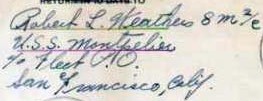 Robert L. Weathers S M 3/c
U.S.S. Montpelier
c/o Fleet P.O.
San Francisco, Calif.